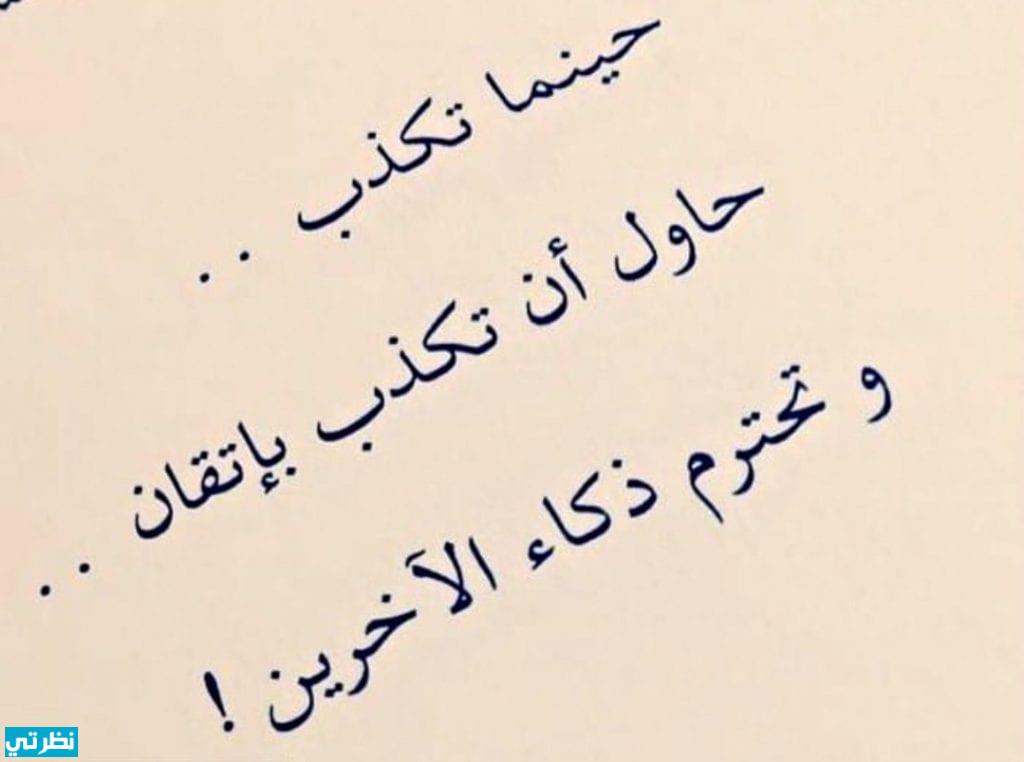 حينما تكذب ..
حاول أن تكذب بإتقان ..
و تحترم ذكاء الآخرين !
نظرتي